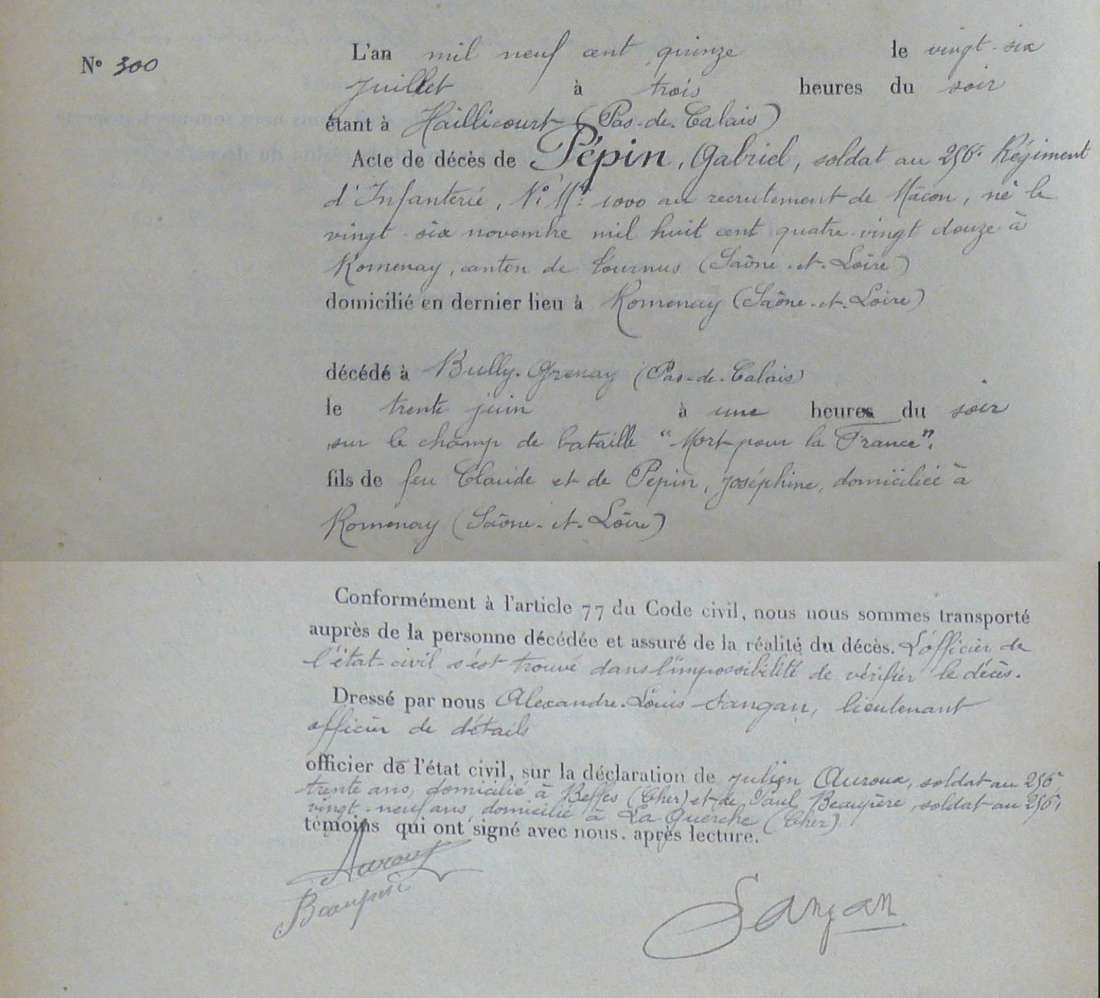 N° 300
L'an mil neuf cent quinze le vingt-six
juillet à trois heures du soir
étant à Haillicourt (Pas-de-Calais)
Acte de décès de Pépin, Gabriel, soldat au 256e Régiment
d'Infanterie, N° Mle 1000 au recrutement de Mâcon, né le
vingt-six novembre mil huit cent quatre-vingt douze à
Romenay, canton de Tournus (Saône-et-Loire)
domicilié en dernier lieu à Romenay (Saône-et-Loire)
décédé à Bully-Grenay (Pas-de-Calais)
le trente juin à une heures du soir
sur le champ de bataille "Mort pour la France".
fils de feu Claude et de Pépin, Joséphine, domiciliée à
Romenay (Saône-et-Loire)
Conformément à l'article 77 du Code civil, nous nous sommes transporté
auprès de la personne décédée et assuré de la réalité du décès. L'officier de
l'état-civil s'est trouvé dans l'impossibilité de vérifier le décès.
Dressé par nous Alexandre-Louis Sangan, lieutenant
officier de détails
officier de l'état civil, sur la déclaration de Julien Auroux, soldat au 256e
trente ans, domicilié à Beffes (Cher) et de Paul Beaupère, soldat au 256e,
vingt-neuf ans, domicilié à La Guerche (Cher)
témoins qui ont signé avec nous. après lecture.
Auroux
Beaupère
Sangan